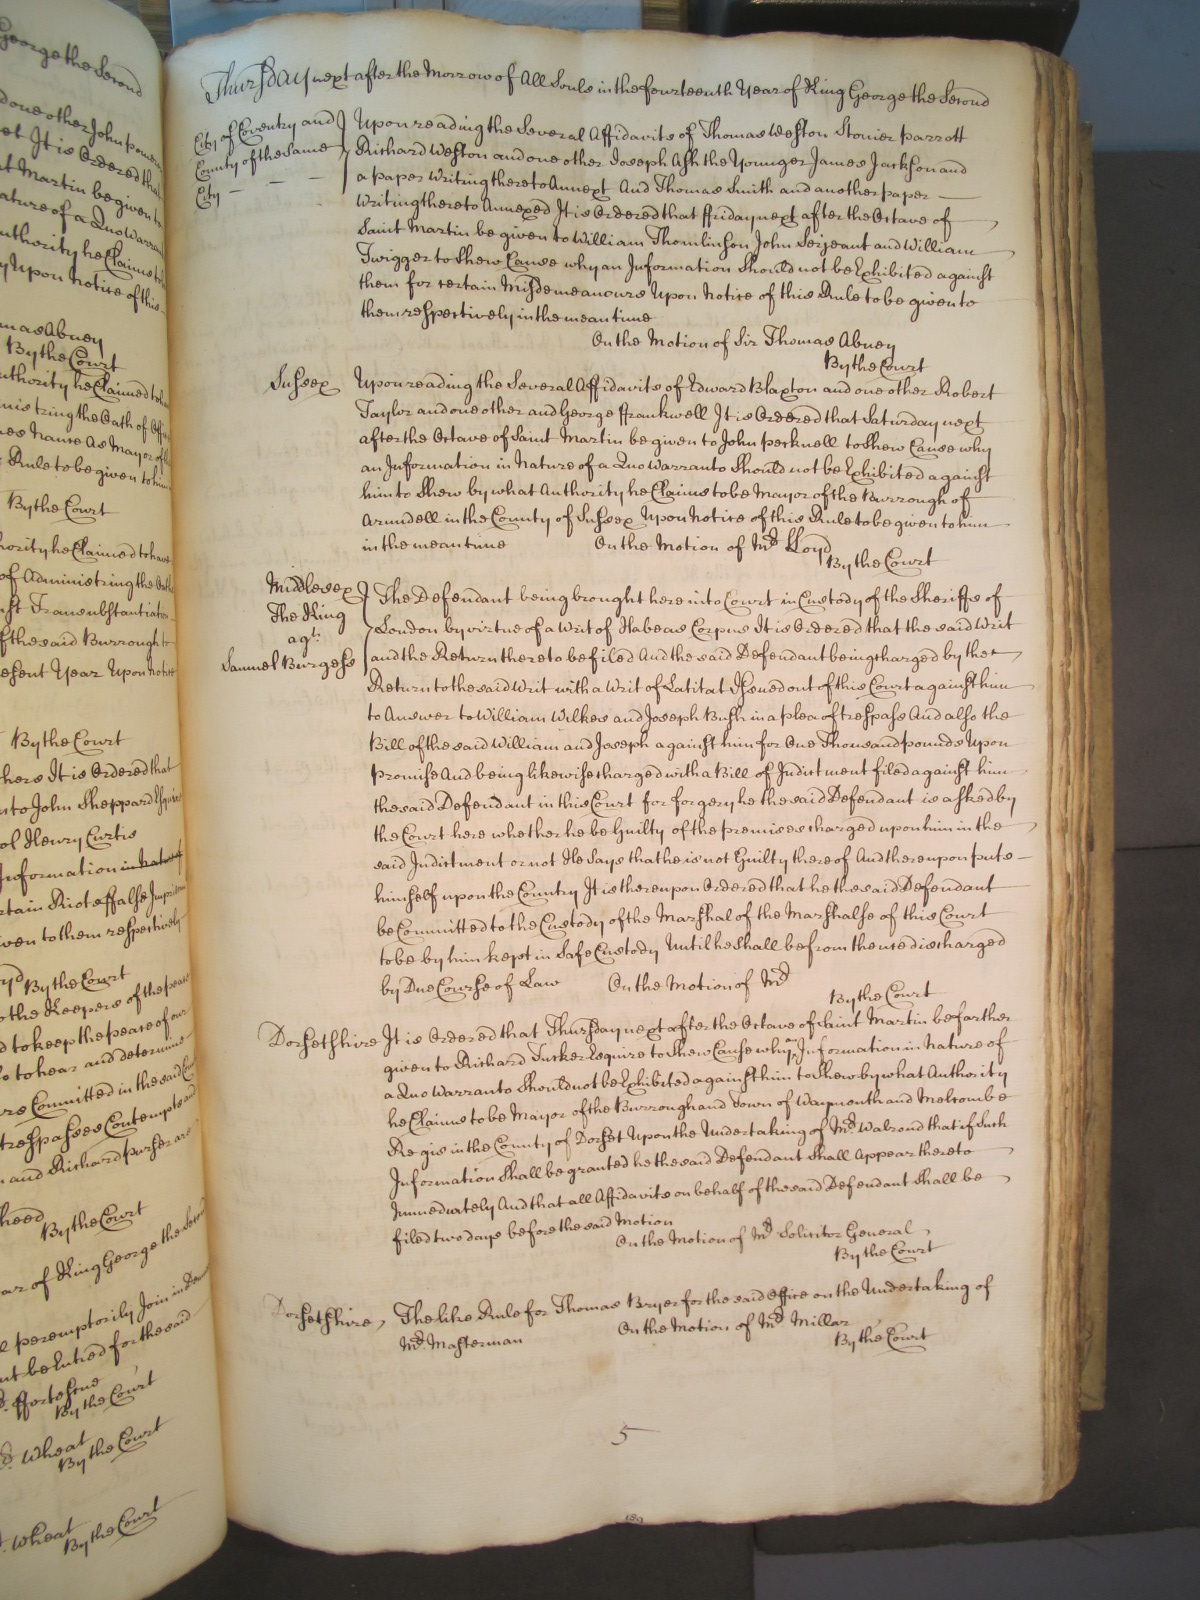 George the Second
done other John
et It is Ordered that
t Martin be given to
ature of a Quo Warranto
uthority he Claims to
y Upon Notice of this
mas Abney
By the Court
uthority he Claimed to
nistring the Oath of
es Name As Mayor of
Rule to be given to him
By the Court
hority he Claimed to have
of Administring the Oath
nst Transubstantiation
f the said Burrough
esent Year Upon Notice
By the Court
hers It is Ordered that
n to John Sheppard Esquire
ol Henry Curtis
Information in Nature of
rtain Riot & ffalse
iven to them respectively
yd By the Court
o the Keepers of the peace
d to keep the peace of our
so to hear and determine
rs Committed in the said
trespasses Contempts and
and Richard purser are
heed
By the Court
ar of King George the Second
l peremptorily Join in
nt be Entred for the said
ffortescue
By the Court
Wheat
By the Court
Wheat
By the Court
Thursday next after the Morrow of All Souls in the fourteenth Year of King George the Second
City of Coventry and Upon reading the Several Affidavits of Thomas Weston Stonier parrott
County of the Same Richard Weston and one other Joseph Ash the Younger James Jackson and
City - - - a paper Writing thereto Annext And Thomas Smith and another paper
Writing thereto Annexed It is Ordered that ffriday next after the Octave of
Saint Martin be given to William Thomlinson John Serjeant and William
Twigger to Shew Cause why an Information Should not be Exhibited against
them for certain Misdemeanours Upon Notice of this Rule to be given to
them respectively in the mean time
On the Motion of Sir Thomas Abney
By the Court
Sussex Upon reading the Several Affidavits of Edward Blaxton and one other Robert
Taylor and one other and George ffrankwell It is Ordered that Saturday next
after the Octave of Saint Martin be given to John pecknell to Shew Cause why
an Information in Nature of a Quo Warranto Should not be Exhibited against
him to Shew by what Authority he Claims to be Mayor of the Burrough of
Arundell in the County of Sussex Upon Notice of this Rule to be given to him
in the mean time On the Motion of Mr. Lloyd
By the Court
Middlesex The Defendant being brought here into Court in Custody of the Sheriffs of
The King
agt. London by virtue of a Writ of Habeas Corpus It is Ordered that the said Writ
Samuel Burgess and the Return thereto be filed And the said Defendant being charged by the
Return to the said Writ with a Writ of Latitat Issued out of this Court against him
to Answer to William Wilkes and Joseph Bush in a plea of trespass And also the
Bill of the said William and Joseph against him for One Thousand pounds Upon
promise And being likewise charged with a Bill of Indictment filed against him
the said Defendant in this Court for forgery he the said Defendant is asked by
the Court here whether he be Guilty of the premises charged upon him in the
said Indictment or not He Says that he is not Guilty thereof And thereupon puts
himself upon the Country It is thereupon Ordered that he the said Defendant
be Committed to the Custody of the Marshal of the Marshalse of this Court
to be by him kept in Safe Custody Until he shall be from thence discharged
by Due Course of Law On the Motion of Mr.
By the Court
Dorsetshire It is Ordered that Thursday next after the Octave of Saint Martin be farther
given to Richard Tucker Esquire to Shew Cause why an Information in Nature of
a Quo Warranto Should not be Exhibited against him to Shew by what Authority
he Claims to be Mayor of the Burrough and Town of Waymouth and Melcombe
Regis in the County of Dorset Upon the Undertaking of Mr. Walrond that if Such
Information Shall be granted he the said Defendant Shall Appear thereto
Immediately And that all Affidavits on behalf of the said Defendant shall be
filed two days before the said Motion
On the Motion of Mr. Solicitor General
By the Court
Dorsetshire The like Rule for Thomas Bryer for the said Office on the Undertaking of
Mr. Masterman On the Motion of Mr. Millar
By the Court
5